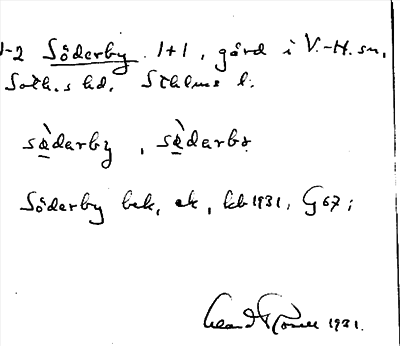 1-2 Söderby. 1+1, gård i V.-H. sn,
Soth.s hd. Sthlms l.
sø̀derby, sø̀derbø
Söderby bek, ek, kb 1931, G 67;
1931.